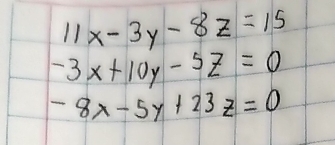 11x-3y-8z=15
-3x+10y-5z=0
-8x-5y+23z=0